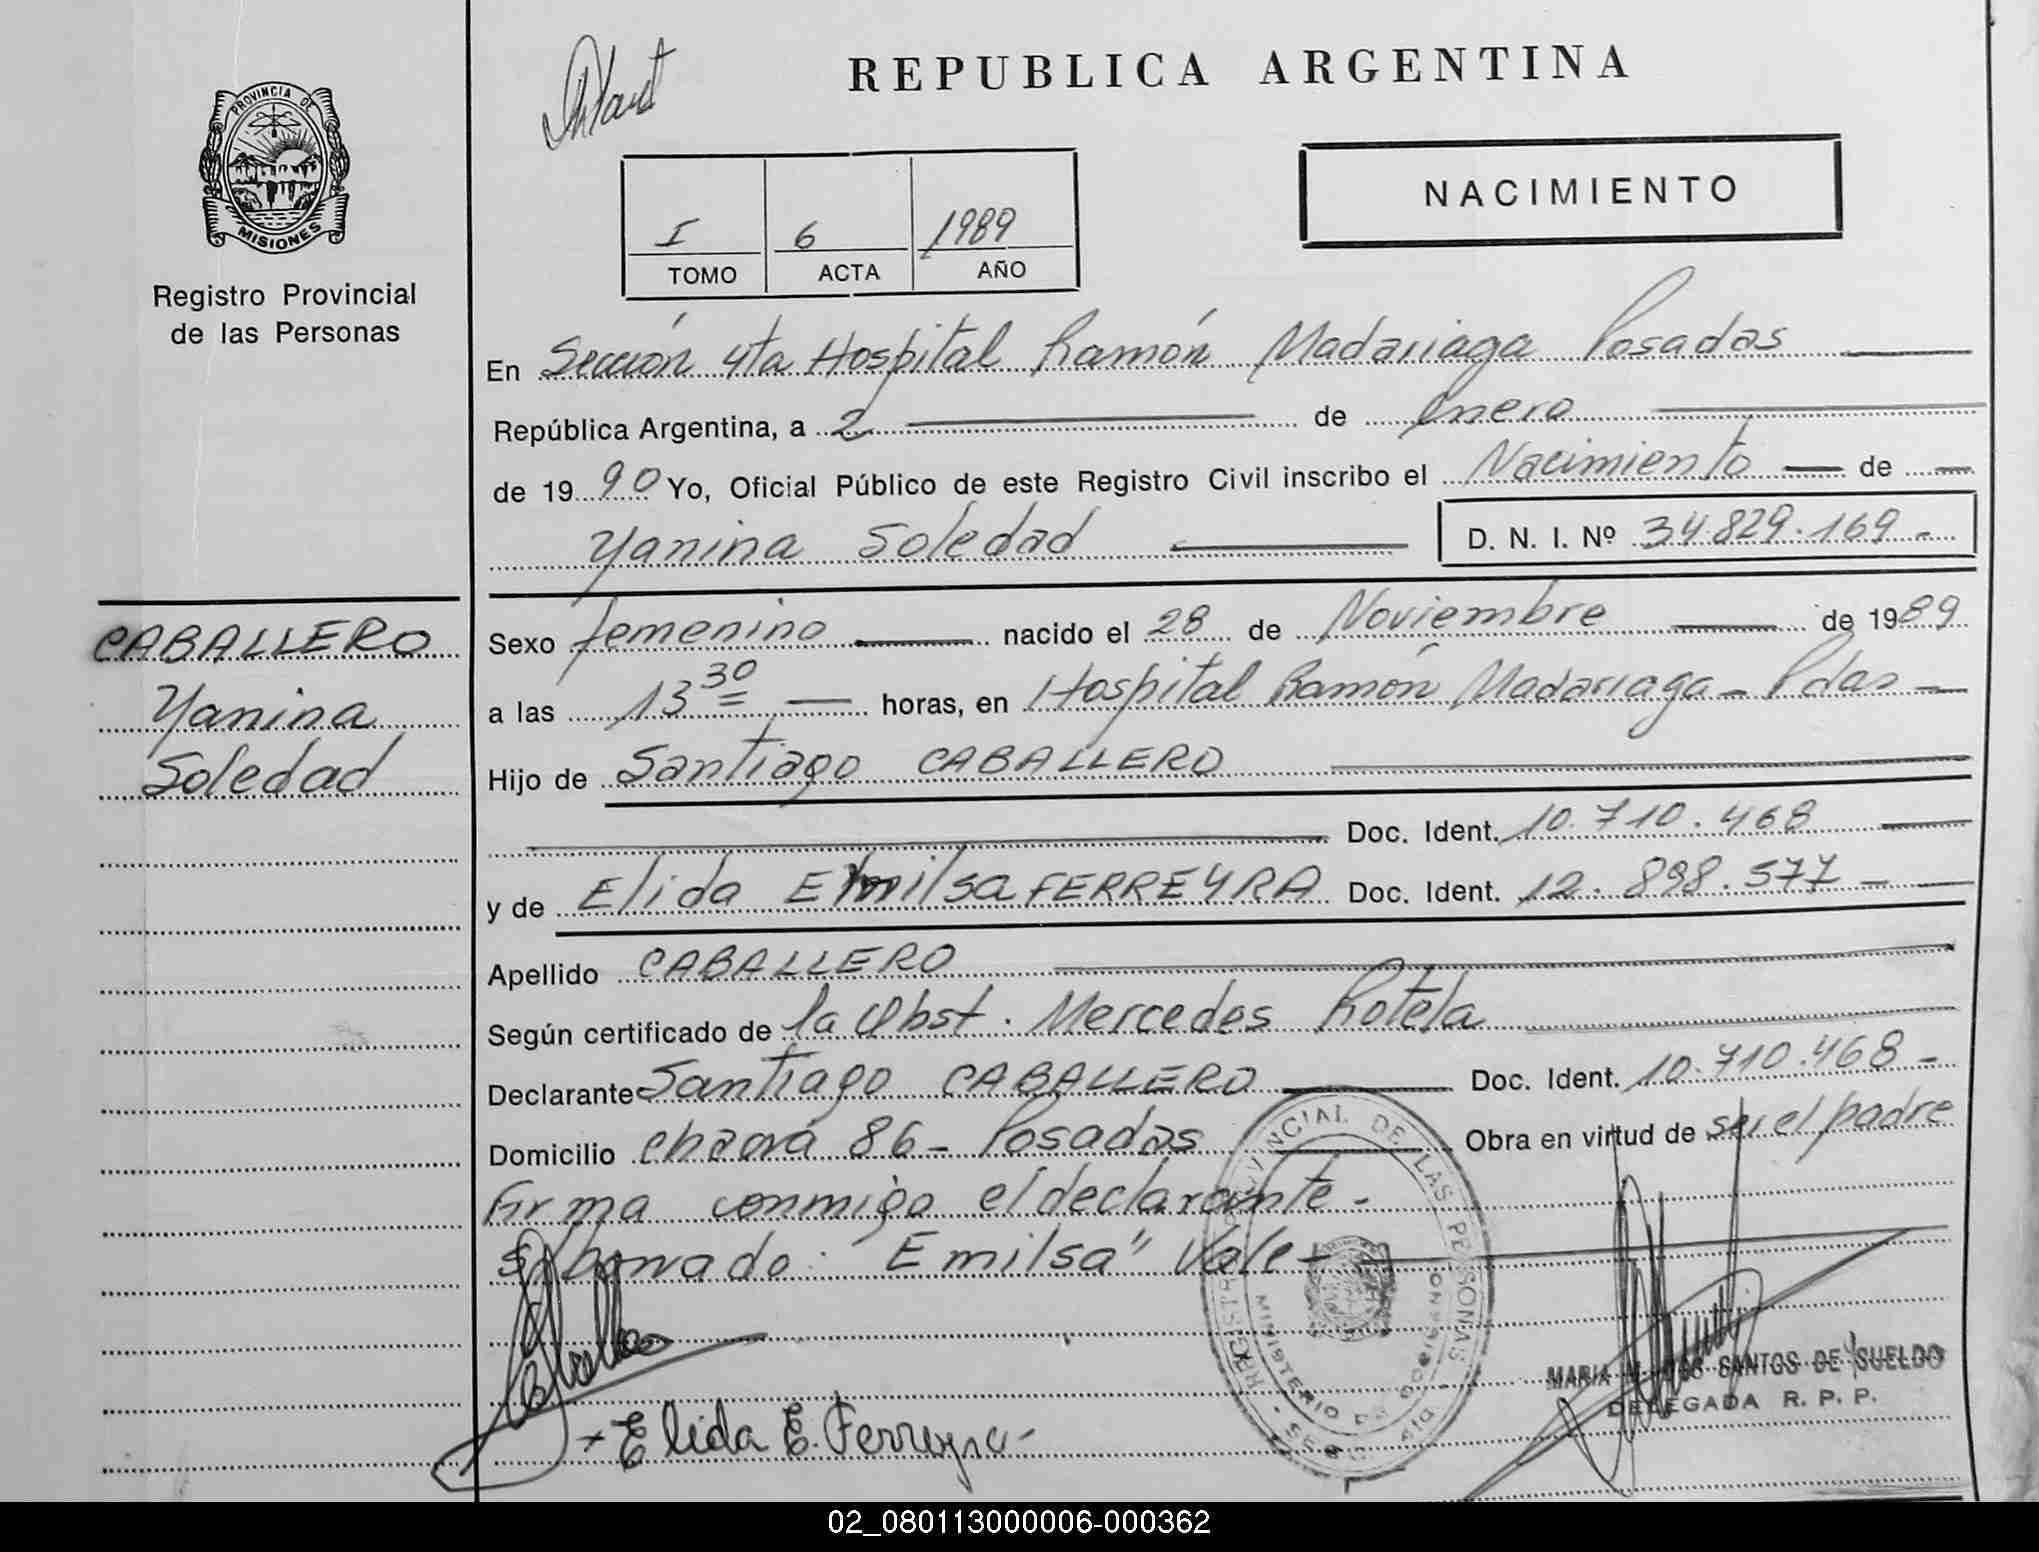 PROVINCIA DE
MISIONES
Registro Provincial
de las Personas
CABALLERO
Yanina
Soledad
REPUBLICA ARGENTINA
I 6 1989
TOMO ACTA AÑO
NACIMIENTO
En Sección 4ta Hospital Ramón Madariaga Posadas
República Argentina, a 2 de Enero
de 1990 Yo, Oficial Público de este Registro Civil inscribo el Nacimiento de
Yanina Soledad D. N. I. Nº 34.829.169-
Sexo femenino nacido el 28 de Noviembre de 1989
a las 13 30 horas, en Hospital Ramón Madariaga - Pdas -
Hijo de Santiago CABALLERO
Doc. Ident. 10.710.468
y de Elida Emilsa FERREYRA Doc. Ident. 12.898.577-
Apellido CABALLERO
Según certificado de la Obst. Mercedes Rotela
Declarante Santiago CABALLERO Doc. Ident. 10.710.468-
Domicilio Chacra 86- Posadas Obra en virtud de ser el padre
Firma conmigo el declarante-
S/borrado: "Emilsa" Vale-
REGISTRO PROVINCIAL DE LAS PERSONAS
MINISTERIO DE GOBIERNO
MARIA DOS SANTOS DE SUELDO
DELEGADA R. P. P.
+ Elida E. Ferreyra-
02_080113000006-000362